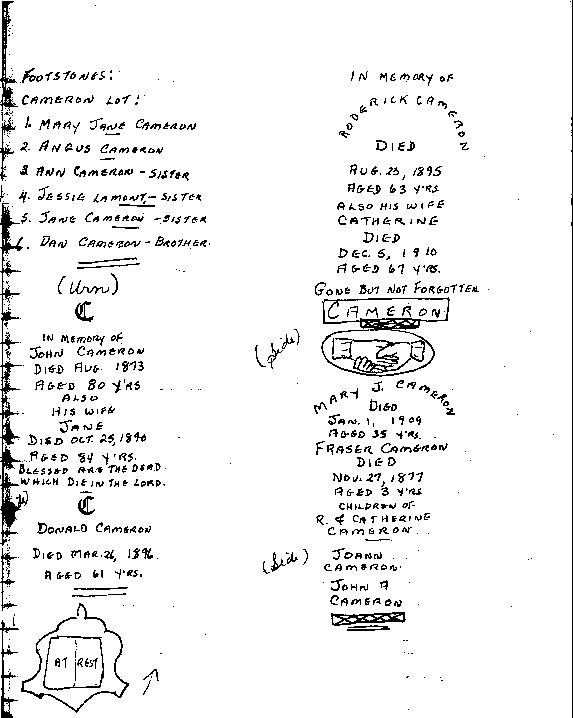 FOOTSTONES:
CAMERON LOT:
1. MARY JANE CAMERON
2. ANGUS CAMERON
3. ANN CAMERON - SISTER
4. JESSIE LAMONT - SISTER
5. JANE CAMERON - SISTER
6. DAN CAMERON - BROTHER.
(Urn)
C
IN MEMORY OF
JOHN CAMERON
DIED AUG. 1873
AGED 80 Y'RS
ALSO
HIS WIFE
JANE
DIED OCT. 25, 1890
AGED 84 Y'RS.
BLESSED ARE THE DEAD.
WHICH DIE IN THE LORD.
C
DONALD CAMERON
DIED MAR. 26, 1896.
AGED 61 Y'RS.
AT REST
IN MEMORY OF
RODERICK CAMERON
DIED
AUG. 23, 1895
AGED 63 Y'RS
ALSO HIS WIFE
CATHERINE
DIED
DEC. 5, 1910
AGED 67 Y'RS.
GONE BUT NOT FORGOTTEN
CAMERON
(Side)
MARY J. CAMERON
DIED
JAN. 1, 1909
AGED 35 Y'RS.
FRASER CAMERON
DIED
NOV. 27, 1877
AGED 3 Y'RS
CHILDREN OF
R. & CATHERINE
CAMERON
(Side)
JOANN
CAMERON
JOHN A
CAMERON